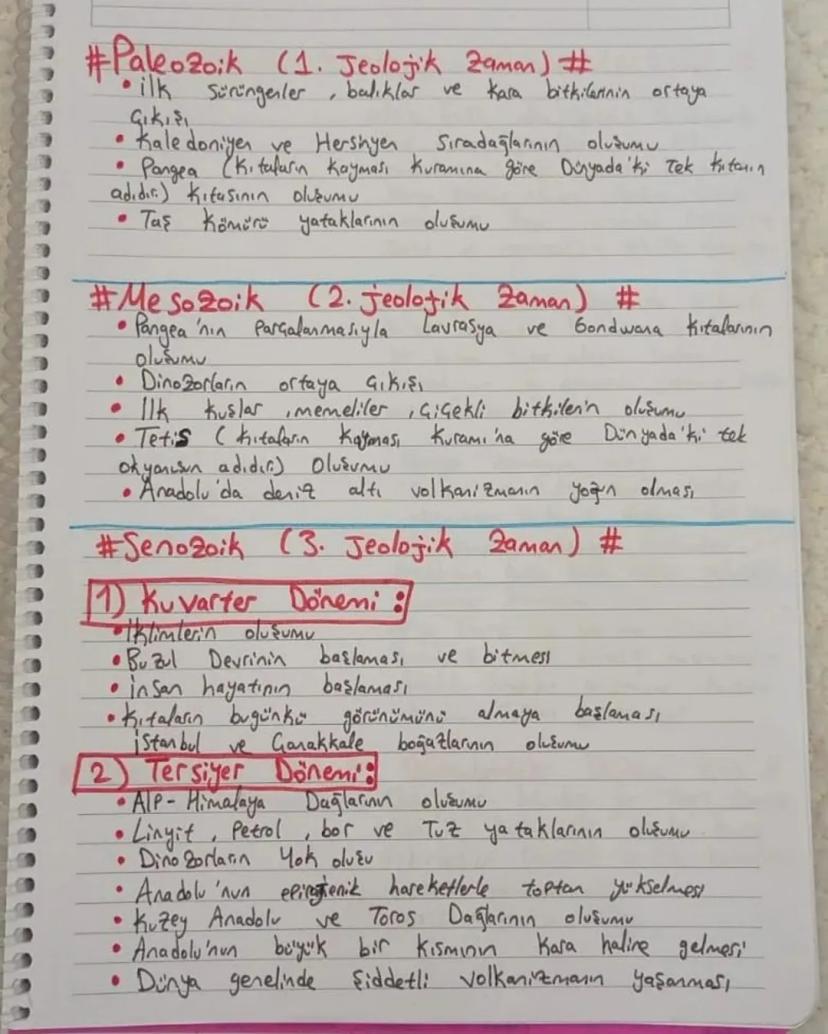 #Paleozoik (1. Jeolojik Zaman) #
• ilk sürüngenler, balıklar ve kara bitkilerinin ortaya
çıkışı
• Kaledoniyen ve Hersinyen Sıradağlarının oluşumu
• Pangea (Kıtaların Kayması Kuramına göre Dünyada'ki Tek kıtanın
adıdır.) Kıtasının oluşumu
• Taş Kömürü yataklarının oluşumu
#Mesozoik (2. jeolojik Zaman) #
• Pangea'nın Parçalanmasıyla Lavrasya ve Gondwana Kıtalarının
oluşumu
• Dinozorların ortaya çıkışı
• İlk kuşlar, memeliler, çiçekli bitkilerin oluşumu
• Tetis (Kıtaların Kayması Kuramı'na göre Dünyada'ki tek
okyanusun adıdır.) Oluşumu
• Anadolu'da deniz altı volkanizmanın yoğun olması
#Senozoik (3. Jeolojik Zaman) #
1) Kuvarter Dönemi:
• İklimlerin oluşumu
• Buzul Devrinin başlaması ve bitmesi
• insan hayatının başlaması
• Kıtaların bugünkü görünümünü almaya başlaması
istanbul ve Çanakkale boğazlarının oluşumu
2) Tersiyer Dönemi:
• Alp-Himalaya Dağlarının oluşumu
• Linyit, Petrol, bor ve Tuz yataklarının oluşumu
• Dinozorların Yok oluşu
• Anadolu'nun epirojenik hareketlerle toptan yükselmesi
• Kuzey Anadolu ve Toros Dağlarının oluşumu
• Anadolu'nun büyük bir kısmının kara haline gelmesi
• Dünya genelinde şiddetli volkanizmanın yaşanması